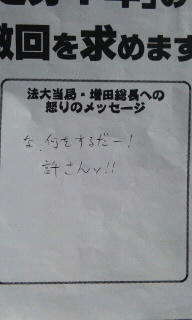 撤回を求めます
法大当局・増田総長への
怒りのメッセージ
な 何をするだー!
許さんッ!!